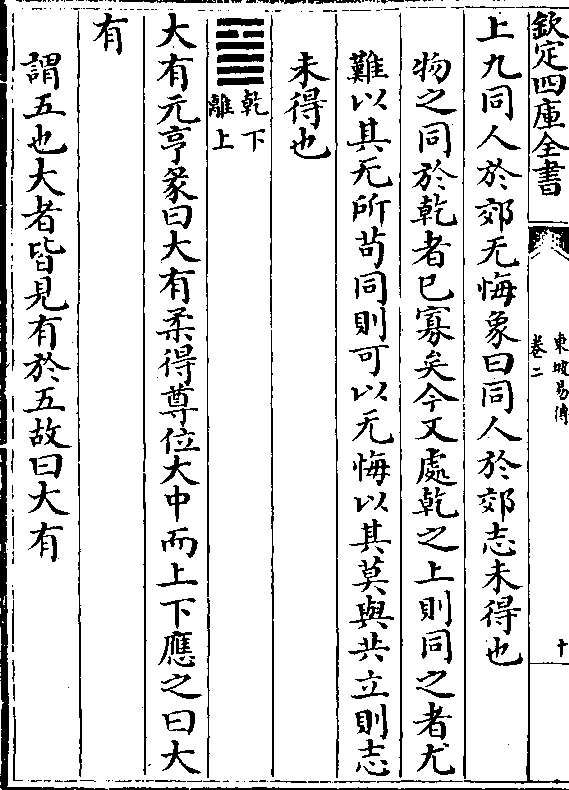 欽定四庫全書
東坡易傳
卷二
十
上九同人於郊无悔象曰同人於郊志未得也
物之同於乾者已寡矣今又處乾之上則同之者尤
難以其无所苟同則可以无悔以其莫與共立則志
未得也
䷍
乾下
離上
大有元亨彖曰大有柔得尊位大中而上下應之曰大
有
謂五也大者皆見有於五故曰大有